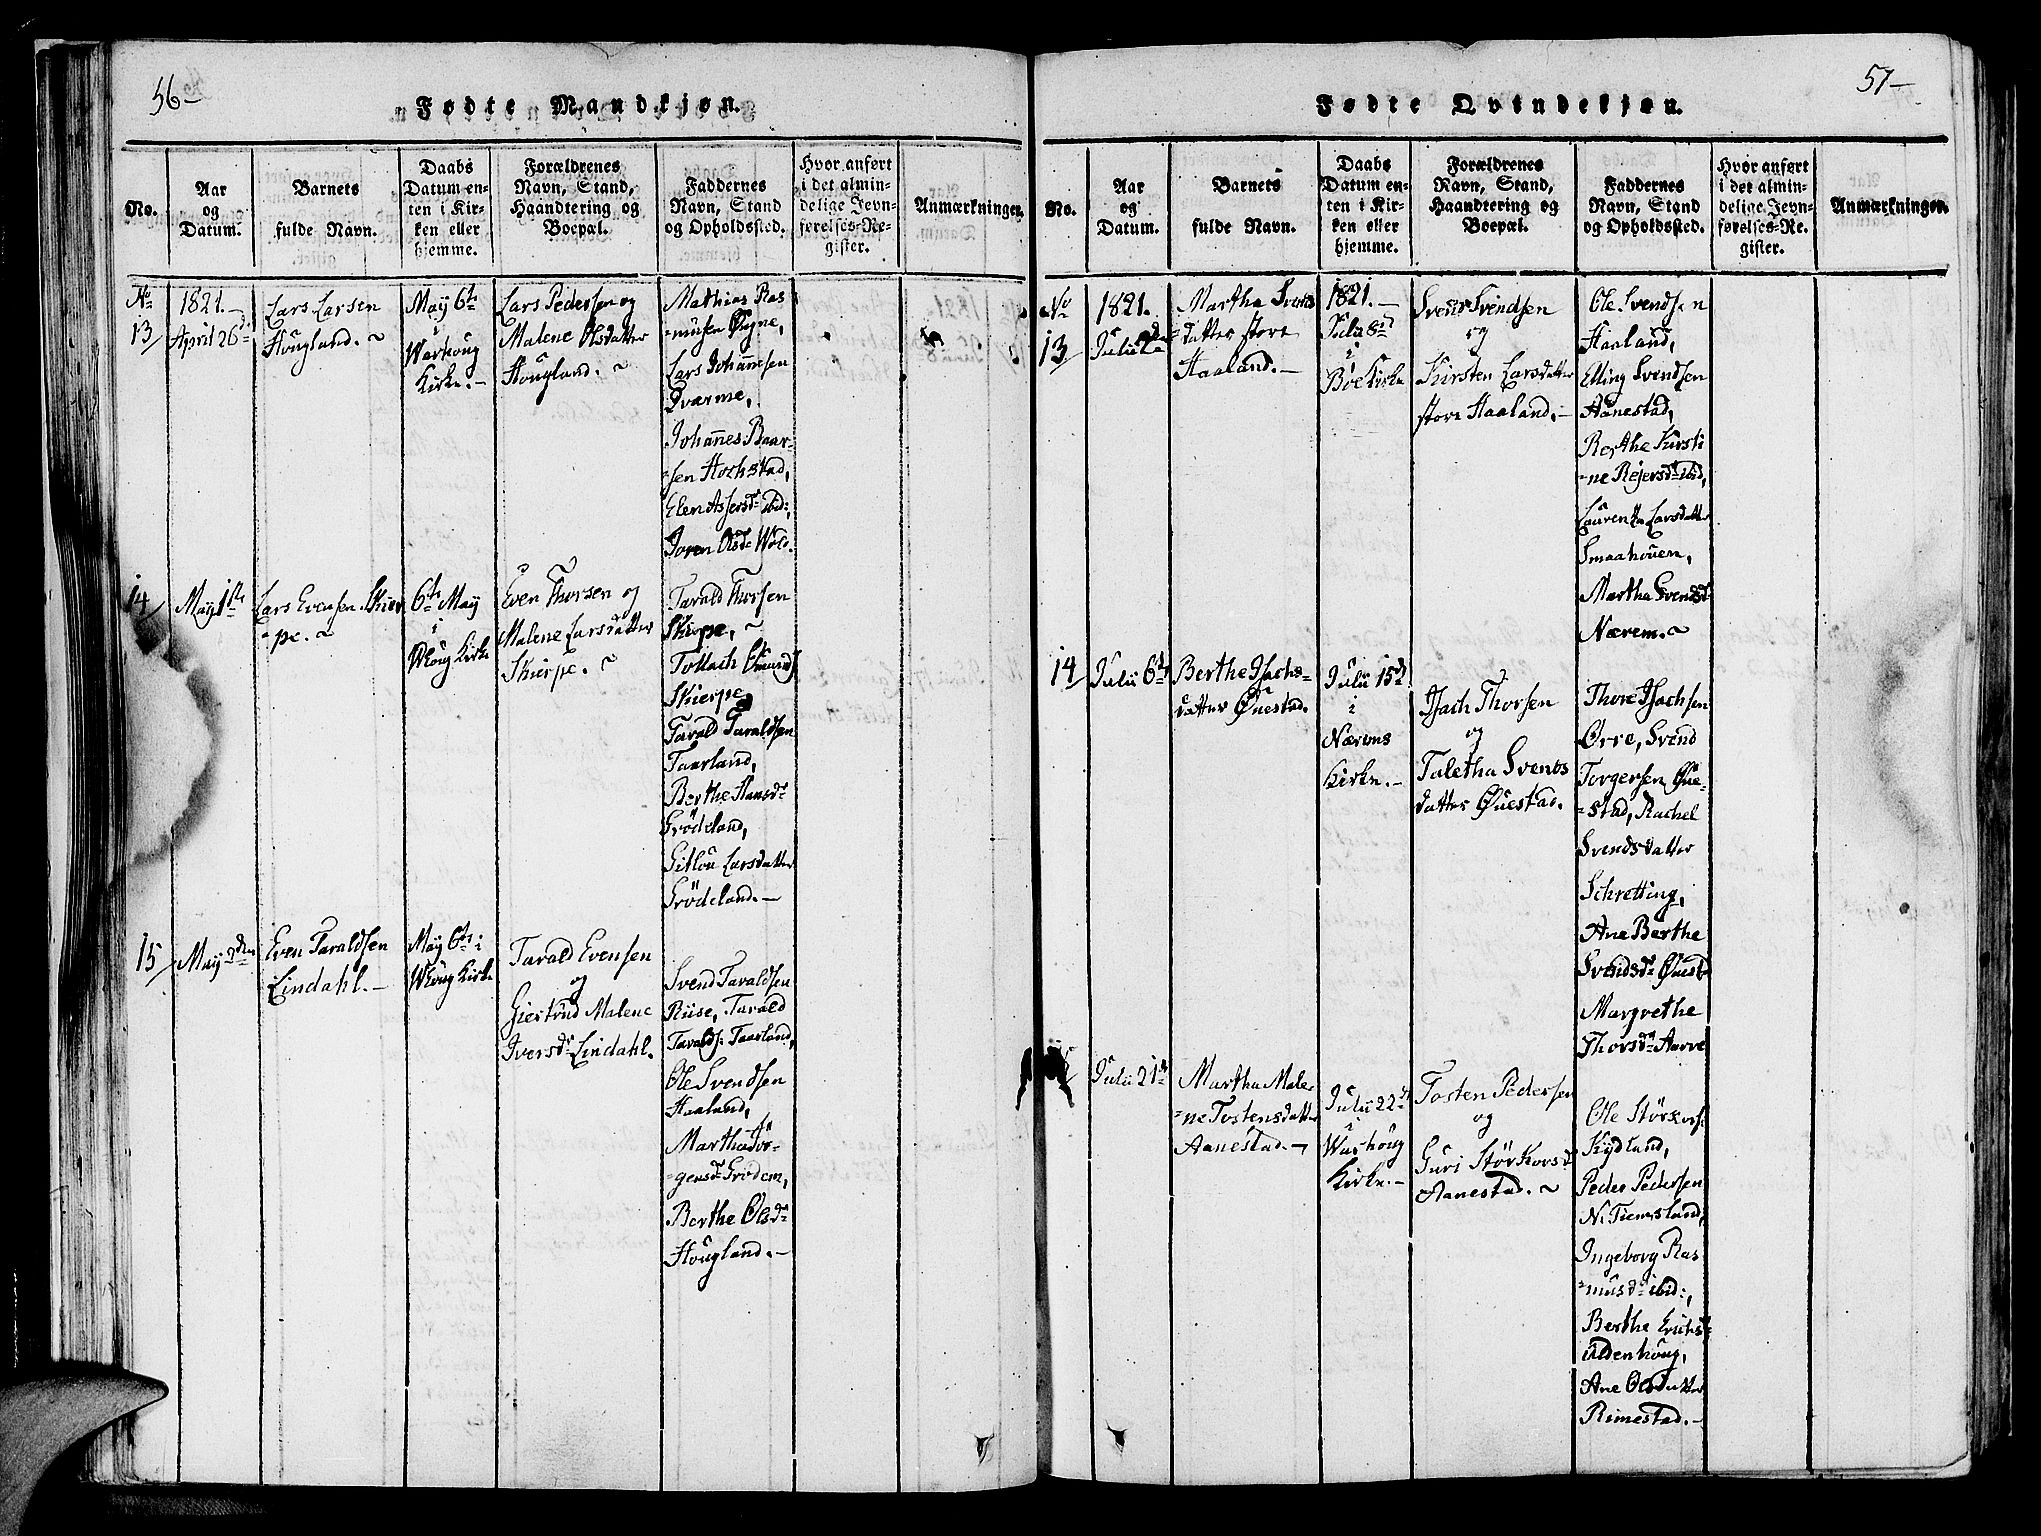 56-
Fødte Mandkjøn.
No.
Aar
og
Datum.
Barnets
fulde Navn.
Daabs
Datum en-
ten i Kir-
ken eller
hjemme.
Forældrenes
Navn, Stand,
Haandtering og
Boepæl.
Faddernes
Navn, Stand
og Opholdssted.
Hvor anført
i det almin-
delige Jevn-
førelses-Re-
gister.
Anmærkninger.
No
13
1821.-
April 26d
Lars Larsen
Hougland. ~
May 6te
i
Warhoug
Kirke.-
Lars Pedersen og
Malene Olsdatter
Hougland. ~
Mathias Ras
musen Øgne,
Lars Johannesen
Dværme,
Johannes Baar-
sen Hochstad,
Elen Assersd. ibid:,
Joren Olsd. Wold.
14
May 1ste
Lars Evensen Skier
pe. ~
6te May
i
Whoug Kirke
Even Thorsen og
Malene Larsdatter
Skierpe. ~
Tarald Thorsen
Skierpe, ~
Tollach Omunds
Skierpe,
Tarald Taraldsen
Taarland,
Berthe Hansd.
Grödeland,
Gitlou Larsdatter
Grödeland.-
15
May 3den
Even Taraldsen
Lindahl.-
May 6te i
Whoug Kirke
Tarald Evensen
og
Giertrud Malene
Iversd. Lindahl.
Svend Taraldsen
Riise, Tarald
Taralds. Taarland,
Ole Svendsen
Haaland,
Martha Jör-
gensd. Grödem,
Berthe Olsd.
Hougland.-
57-
Fødte Qvindekjøn.
No.
Aar
og
Datum.
Barnets
fulde Navn.
Daabs
Datum en-
ten i Kir-
ken eller
hjemme.
Forældrenes
Navn, Stand,
Haandtering og
Boepæl.
Faddernes
Navn, Stand
og Opholdssted.
Hvor anført
i det almin-
delige Jevn-
førelses-Re-
gister.
Anmærkninger.
No
13
1821.
Julii 2d
Martha Svends
datter store
Haaland.-
1821.-
Julii 8d
i
Boe Kirke
Svend Svendsen
og
Kirsten Larsdatter
store Haaland.-
Ole Svendsen
Haaland,
Elling Svendsen
Aanestad,
Berthe Kirsti
ne Rejersd. ibid,
Laurentha Larsdatter
Smaahouen,
Martha Svendsd.
Nærem. ~
14
Julii 6te
Berthe Isachs-
datter Questad.
Julii 15d
i
Nærems
Kirke.-
Isach Thorsen
og
Taletha Svends
datter Questad.
Thore Isachsen
Orre, Svend
Torgersen Que-
stad, Rachel
Svendsdatter
Schretting,
Ane Berthe
Svendsd. Quest
Margrethe
Thorsd. Aarre
Julii 21de
Martha Male
ne Tostensdatter
Aanestad.-
Julii 22d
i
Warhoug
Kirke.-
Tosten Pedersen
og
Guri Störkorsd
Aanestad. ~
Ole Störkors.
Kydland,
Peder Pedersen
N. Tiemsland,
Ingeborg Ras
musd. ibid:,
Berthe Erichsd.
uldenhoug,
Ane Olsdatter
Rimestad.-